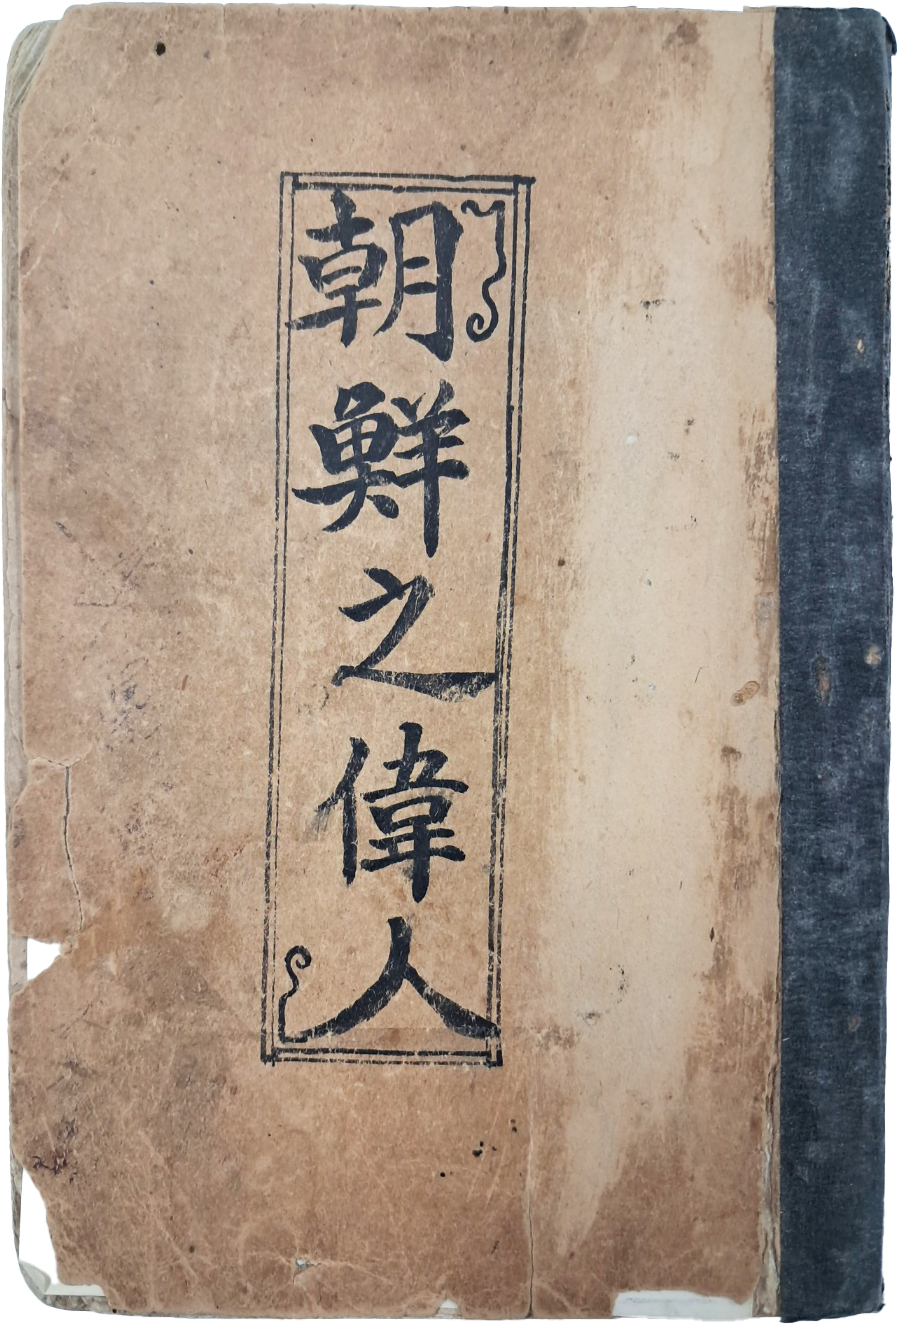 朝鮮之偉人